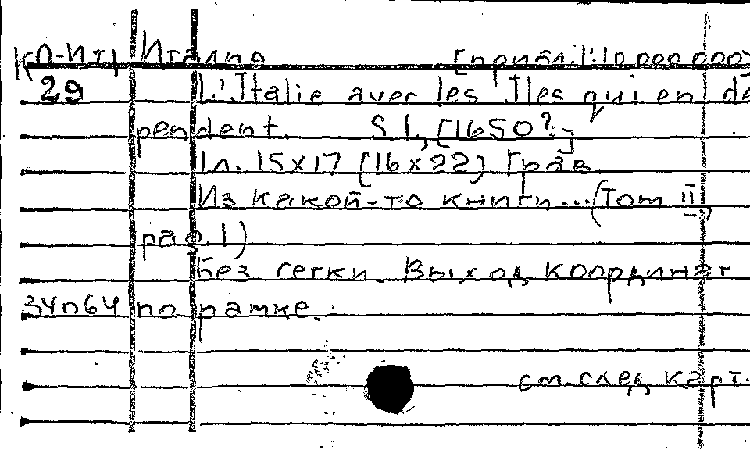 К П-Ит Италия [прибл. 1:10 000 000]
29 L'Italie avec les Iles qui en dé
pendent. S.l., [1650?]
1 л. 15х17 (16х22) Грав.
Из какой-то книги... (Том II,
pag. 1)
Без сетки. Выход координат
34п64 по рамке.
см. след. карт.